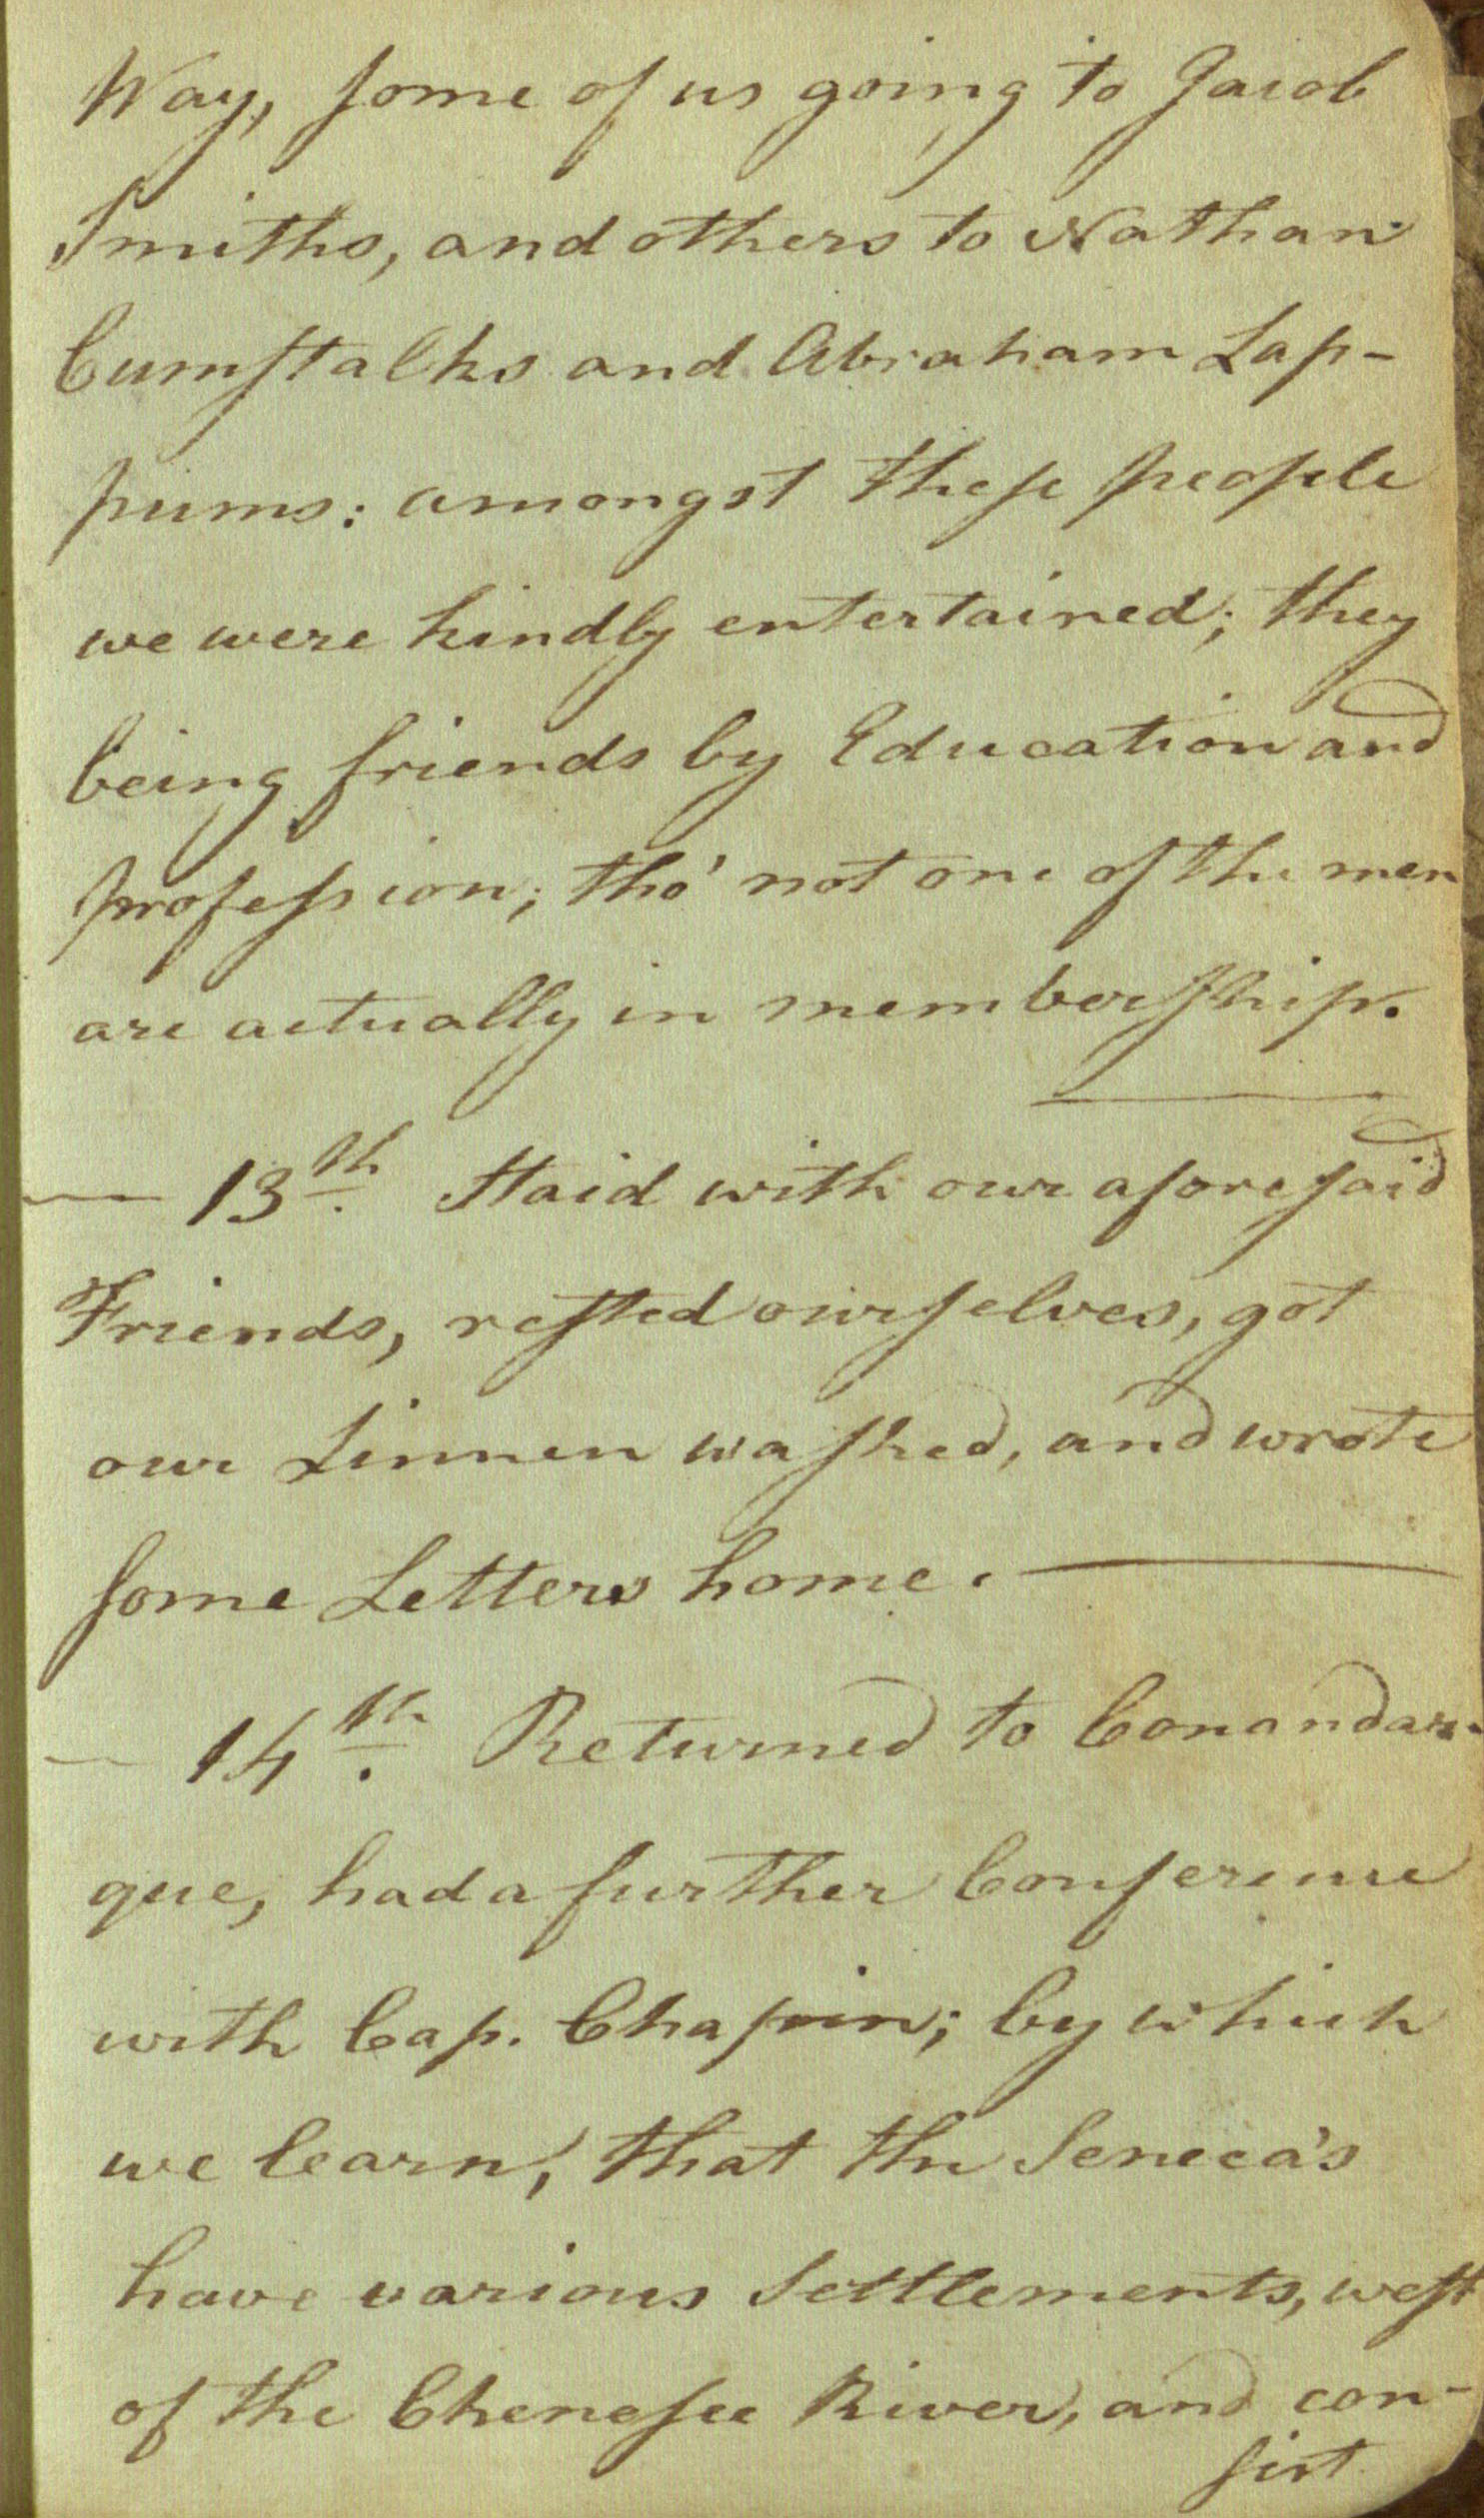 Way, some of us going to Jacob
Smiths, and others to Nathan
Cumstalks and Abraham Lap-
pums: amongst these people
we were kindly entertained; they
being friends by Education and
profession; tho' not one of the men
are actually in membership.
— 13th. Staid with our aforesaid
Friends, rested ourselves, got
our Linnen washed, and wrote
some Letters home. —
— 14th. Returned to Conandar-
que, had a further Conference
with Cap. Chapin; by which
we learn, that the Seneca's
have various Settlements, west
of the Chenesee River, and con-
sist